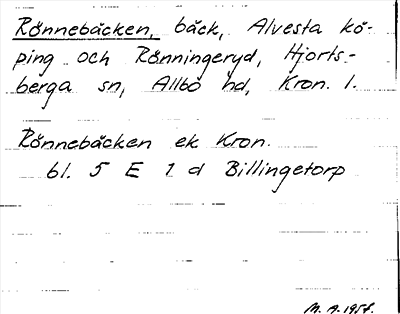 Rönnebäcken, bäck, Alvesta kö-
ping och Rönningeryd, Hjorts-
berga sn, Allbo hd, Kron. l.
Rönnebäcken ek Kron.
bl. 5 E 1 d Billingetorp
M. A. 1957.